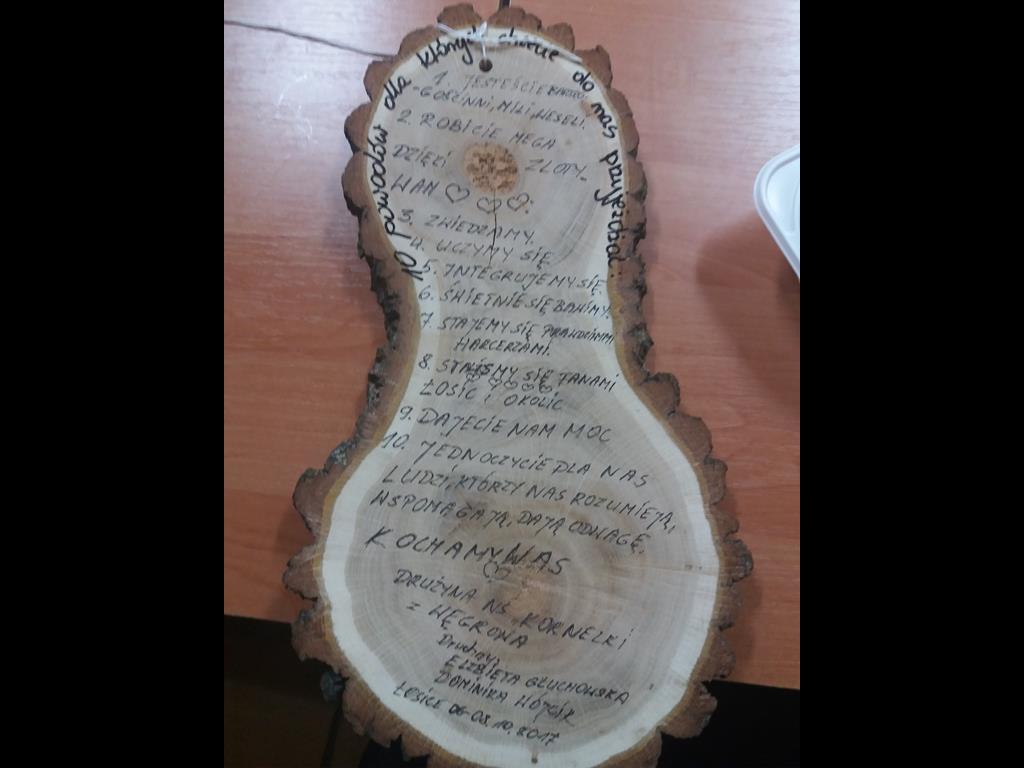 10 powodów dla których chcecie do nas przyjeżdżać:
1. JESTEŚCIE BARDZO
GOŚCINNI, MILI, WESELI.
2. ROBICIE MEGA
DZIĘKI ZLOTY_
WAM ♡ ♡ ♡:
3. ZWIEDZAMY.
4. UCZYMY SIĘ
5. INTEGRUJEMY SIĘ.
6. ŚWIETNIE SIĘ BAWIMY.
7. STAJEMY SIĘ PRAWDZIWYMI
HARCERZAMI.
8. STALIŚMY SIĘ FANAMI
ŁOSIC I OKOLIC
9. DAJECIE NAM MOC
10. JEDNOCZYCIE DLA NAS
LUDZI, KTÓRZY NAS ROZUMIEJĄ,
WSPOMAGAJĄ, DAJĄ ODWAGĘ.
KOCHAMY WAS
♡
DRUŻYNA NŚ KORNELKI
z WĘGROWA
Druhny,
ELŻBIETA GŁUCHOWSKA
DOMINIKA WÓJCIK
ŁOSICE 06-08.10.2017